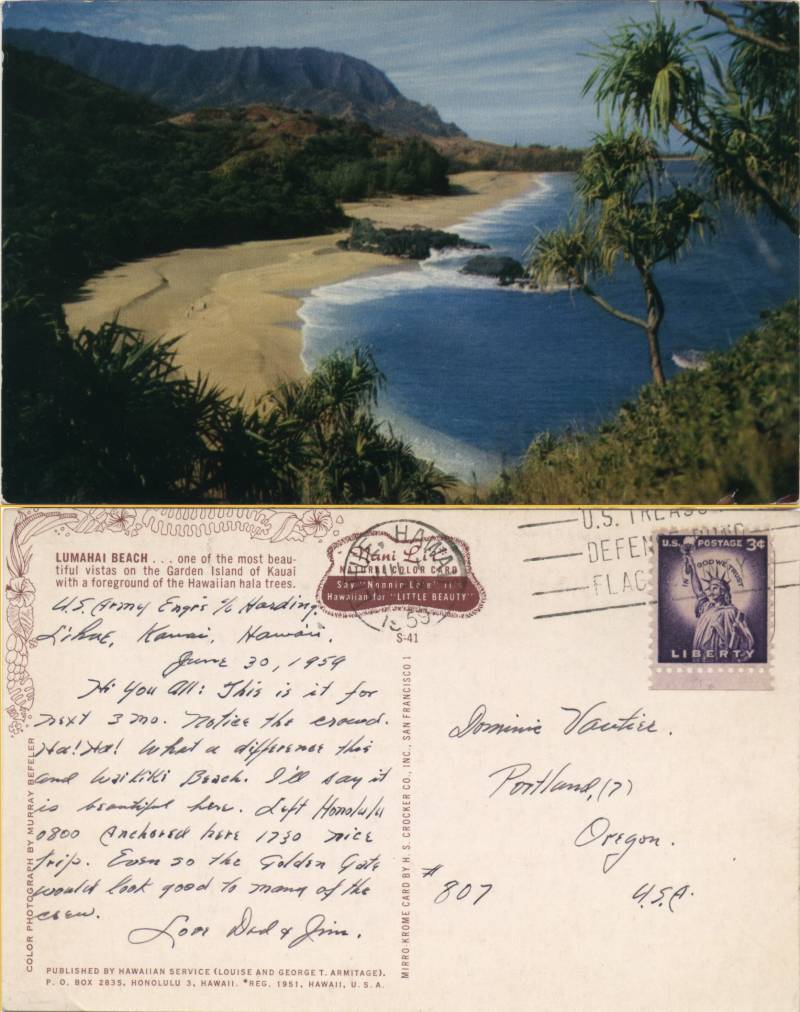 LUMAHAI BEACH . . . one of the most beau-
tiful vistas on the Garden Island of Kauai
with a foreground of the Hawaiian hala trees.
Nani Li'i
NATURAL COLOR CARD
Say "Nannie Lee" it's
Hawaiian for "LITTLE BEAUTY"
S-41
HAWAII
1959
U.S. TREAS
DEFEN
FLAG
U.S. POSTAGE 3¢
IN GOD WE TRUST
LIBERTY
U.S. Army Engrs c/o Harding,
Lihue, Kauai, Hawaii.
June 30, 1959
Hi You All: This is it for
next 3 mo. Notice the crowd.
Ha! Ha! What a difference this
and Waikiki Beach. I'll say it
is beautiful here. Left Honolulu
0800 Anchored here 1730 nice
trip. Even so the Golden Gate
would look good to many of the
crew.
Love Dad & Jim.
Dominic Vautier.
Portland, (7)
Oregon.
# 807 U.S.A.
COLOR PHOTOGRAPH BY MURRAY BEFELER
MIRRO-KROME CARD BY H. S. CROCKER CO., INC., SAN FRANCISCO 1
PUBLISHED BY HAWAIIAN SERVICE (LOUISE AND GEORGE T. ARMITAGE).
P. O. BOX 2835, HONOLULU 3, HAWAII. *REG. 1951, HAWAII, U. S. A.